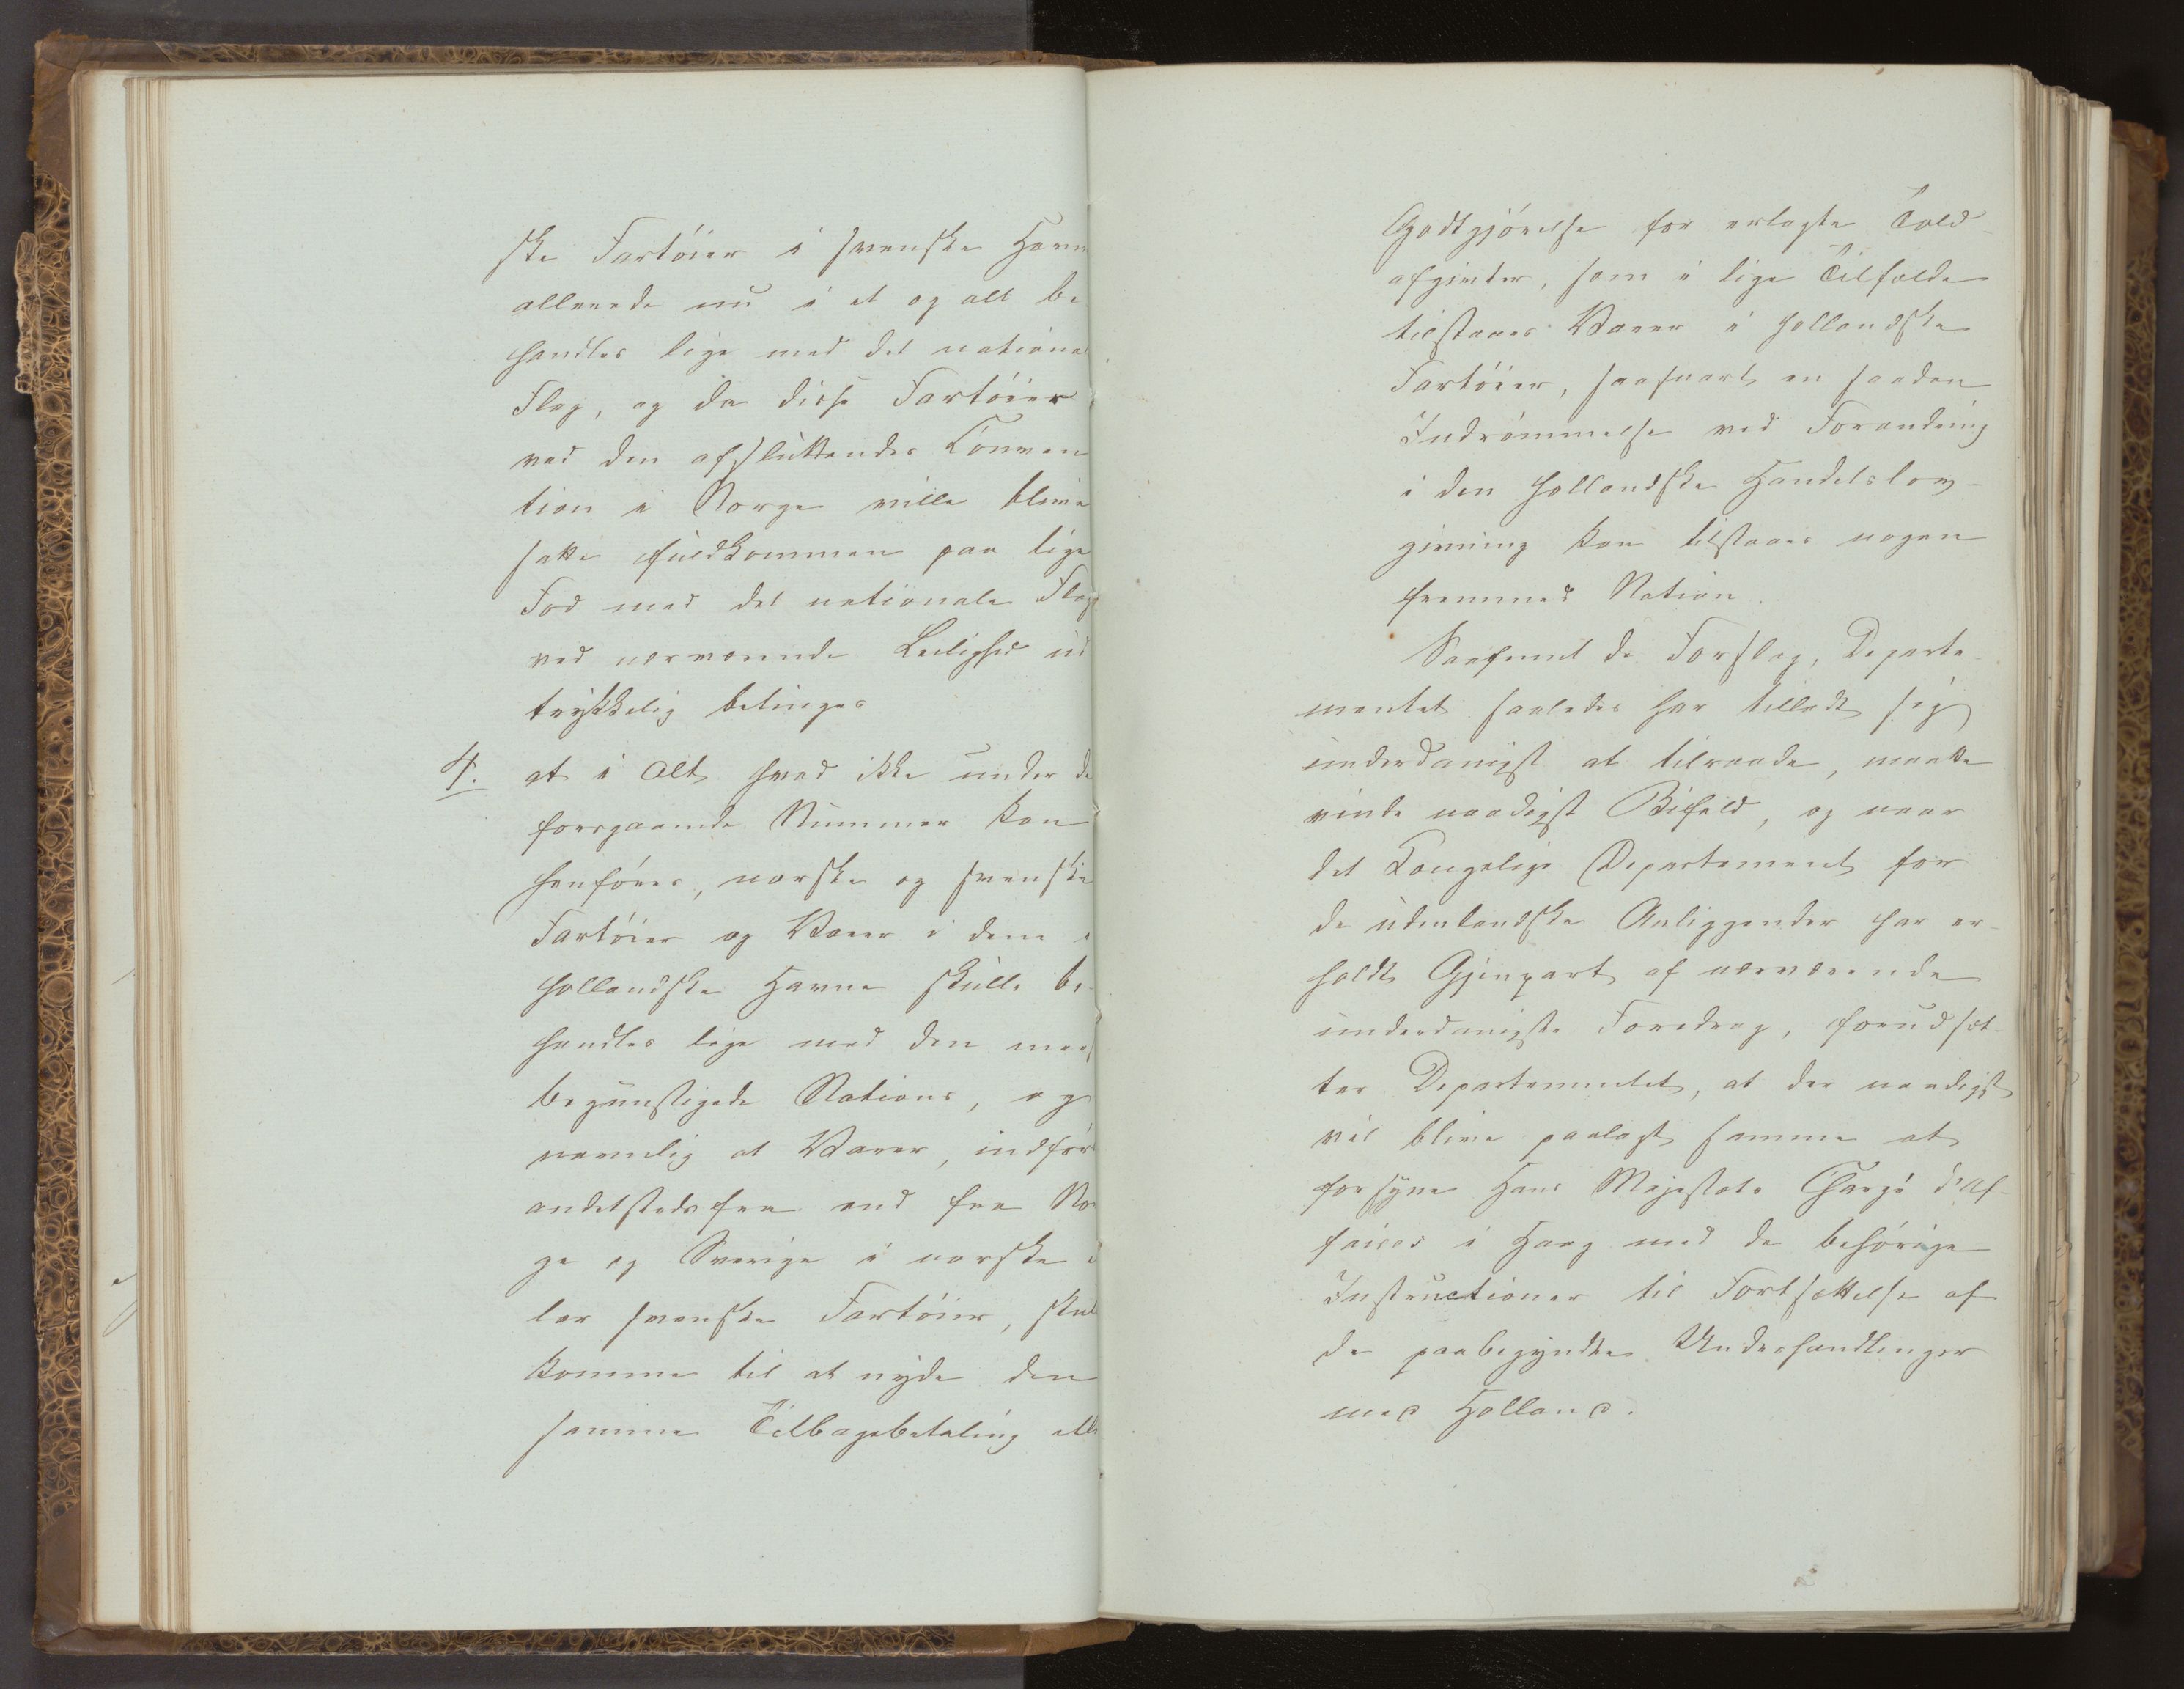 ske Fartöier i svenske Havn
allerede nu i et og alt be
handles lige med det national
Flag, og da disse Fartöier
ved den afsluttendes Conven
tion i Norge ville blive
satte fuldkommen paa lige
Fod med det nationale Flag
ved nærværende Leilighed ud
trykkelig betinges
4. at i Alt hvad ikke under de
foregaaende Nummer kan
henföres, norske og svenske
Fartöier og Varer i dem i
hollandske Havne skulle be-
handles lige med den mest
begunstigede Nations, og
navnlig at Varer, indfört
andetstedsfra end fra Nor
ge og Sverige i norske e
ler svenske Fartöier, skul
komme til at nyde den
samme Tilbagebetaling elle
Godtgjörelse for erlagte Told-
afgivter, som i lige Tilfælde
tilstaaes Varer i hollandske
Fartöier, saasnart en saadan
Indrömmelse ved Forandring
i den hollandske Handelslov-
givning kan tilstaaes nogen
fremmed Nation.
Saafremt de Forslag, Departe-
mentet saaledes har tilladt sig
underdanigst at tilraade, maatte
vinde naadigst Bifald, og naar
det Kongelige Departement for
de udenlandske Anliggender har er-
holdt Gjenpart af nærværende
underdanigste Foredrag, forudsæt-
ter Departementet, at der naadigst
vil blive paalagt samme at
forsyne Hans Majestæts Chargé d'Af-
faires i Haag med de behörige
Instructioner til Fortsættelse af
de paabegyndte Underhandlinger
med Holland.